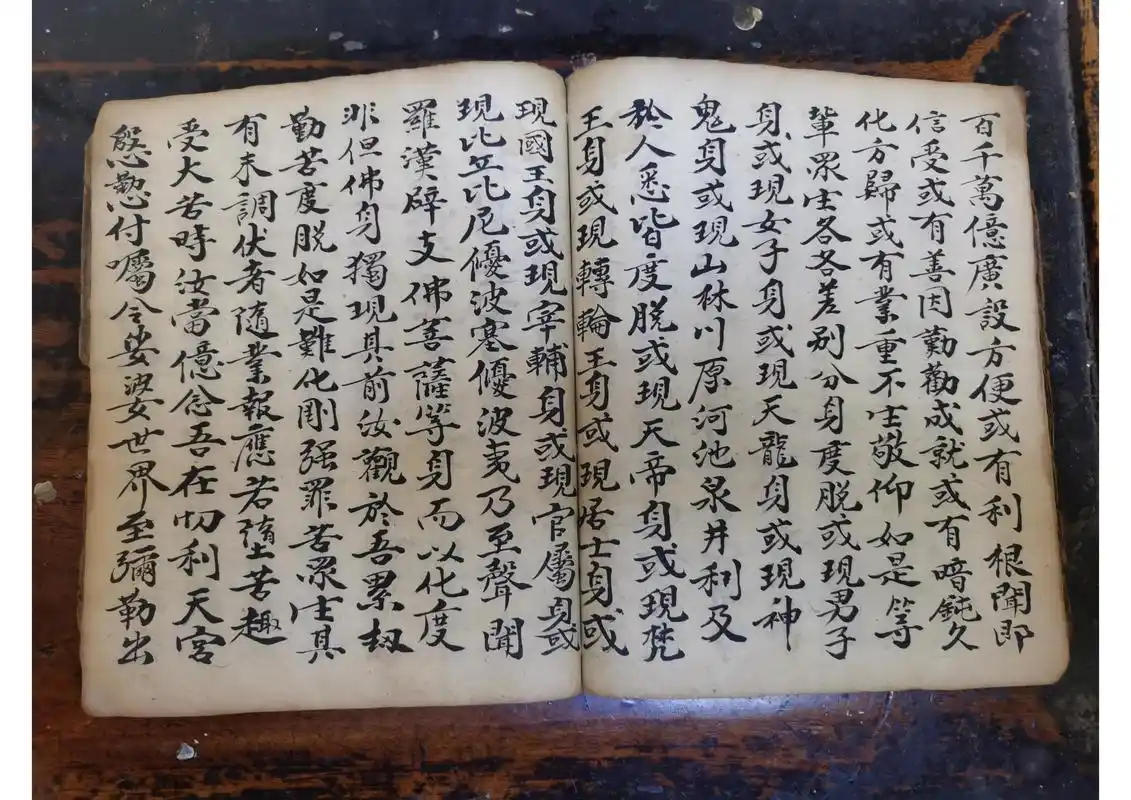 百千萬億廣設方便或有利根聞即
信受或有善因勤勸成就或有暗鈍久
化方歸或有業重不生敬仰如是等
輩眾生各各差別分身度脫或現男子
身或現女子身或現天龍身或現神
鬼身或現山林川原河池泉井利及
於人悉皆度脫或現天帝身或現梵
王身或現轉輪王身或現居士身或
現國王身或現宰輔身或現官屬身或
現比丘比尼優波塞優波夷乃至聲聞
羅漢辟支佛菩薩等身而以化度
非但佛身獨現其前汝觀於吾累刼
勤苦度脫如是難化剛强罪苦眾生具
有未調伏者隨業報應若墮苦趣
受大苦時汝當億念吾在忉利天宮
慇懃付囑令娑婆世界至彌勒出